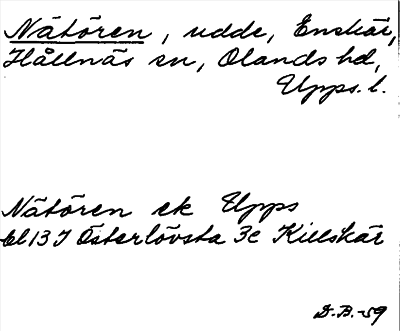 Nätören, udde, Enskär,
Hållnäs sn, Olands hd,
Upps. l.
Nätören ek Upps
bl 13 I Österlövsta 3c Killskär
D.B.-59